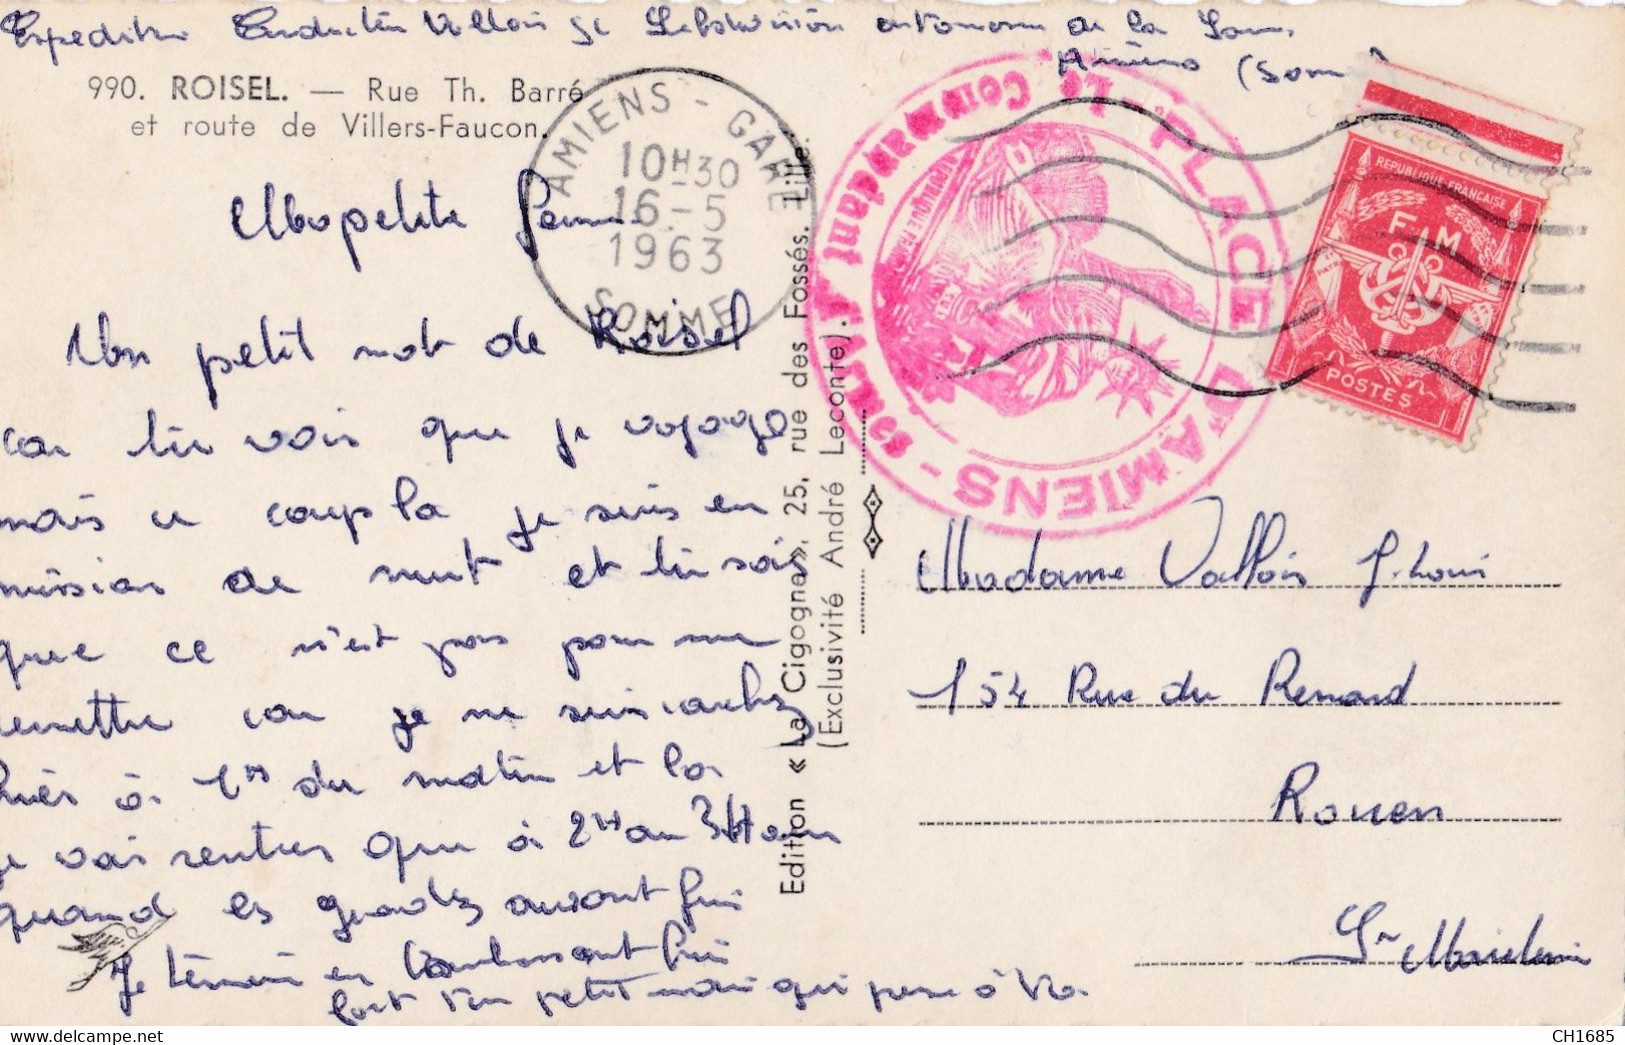 Vallois
autonome de la
Amiens (Somme)
990. ROISEL. — Rue Th. Barré
et route de Villers-Faucon.
AMIENS - GARE
10H30
16-5
1963
SOMME
PLACE D'AMIENS - Le Commandant d'Armes
REPUBLIQUE FRANÇAISE
F M
POSTES
Ma petite
Un petit mot de Roisel
car tu vois que je voyage
mais ce coup la je suis en
mission de nuit et tu sais
que ce n'est pas pour me
remettre car je me suis
hier à 1H du matin et la
je vais rentrer que à 2H ou 3H
quand les auront fini
Je termine en t'embrassant
ton petit mari qui pense à toi
Edition « La Cigogne », 25, rue des Fossés, Lille.
(Exclusivité André Leconte).
Madame Vallois J. Louis
154 Rue du Renard
Rouen
Sne Maritime
CH1685